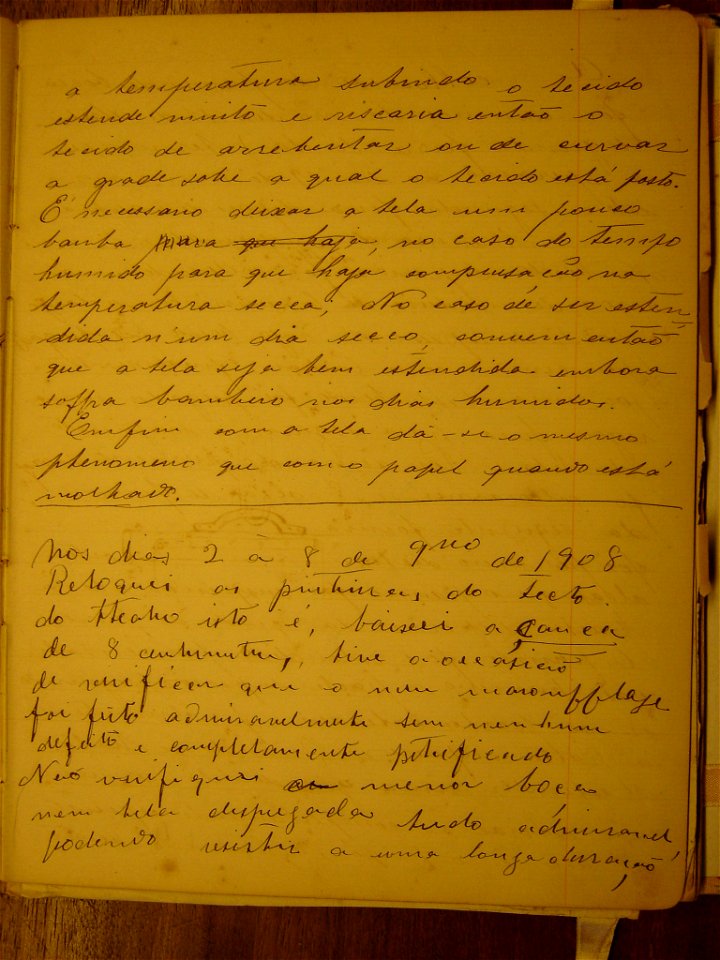 a temperatura subindo o tecido
estende muito e riscaria então o
tecido de arrebentar ou de curvar
a grade sobe a qual o tecido está posto.
É necessario deixar a tela um pouco
bamba para que haja, no caso do tempo
humido para que haja compensacão na
temperatura secca; No caso de ser esten
dida n'um dia secco, convem então
que a tela seja bem estendida embora
soffra bambeio nos dias humidos.
Emfim com a tela dá-se o mesmo
phenomeno que com o papel quando está
molhado.
Nos dias 2 à 8 de de 1908
Retoquei as pinturas do tecto
do theatro isto é, baixei a
de 8 centimetros, tive a occasião
de verificar que o meu maroufflage
foi feito admiravelmente sem nenhum
defeito e completamente petrificado
Não verifiquei a menor boca
nem tela despegada tudo admiravel
podendo resistir a uma longa duração,